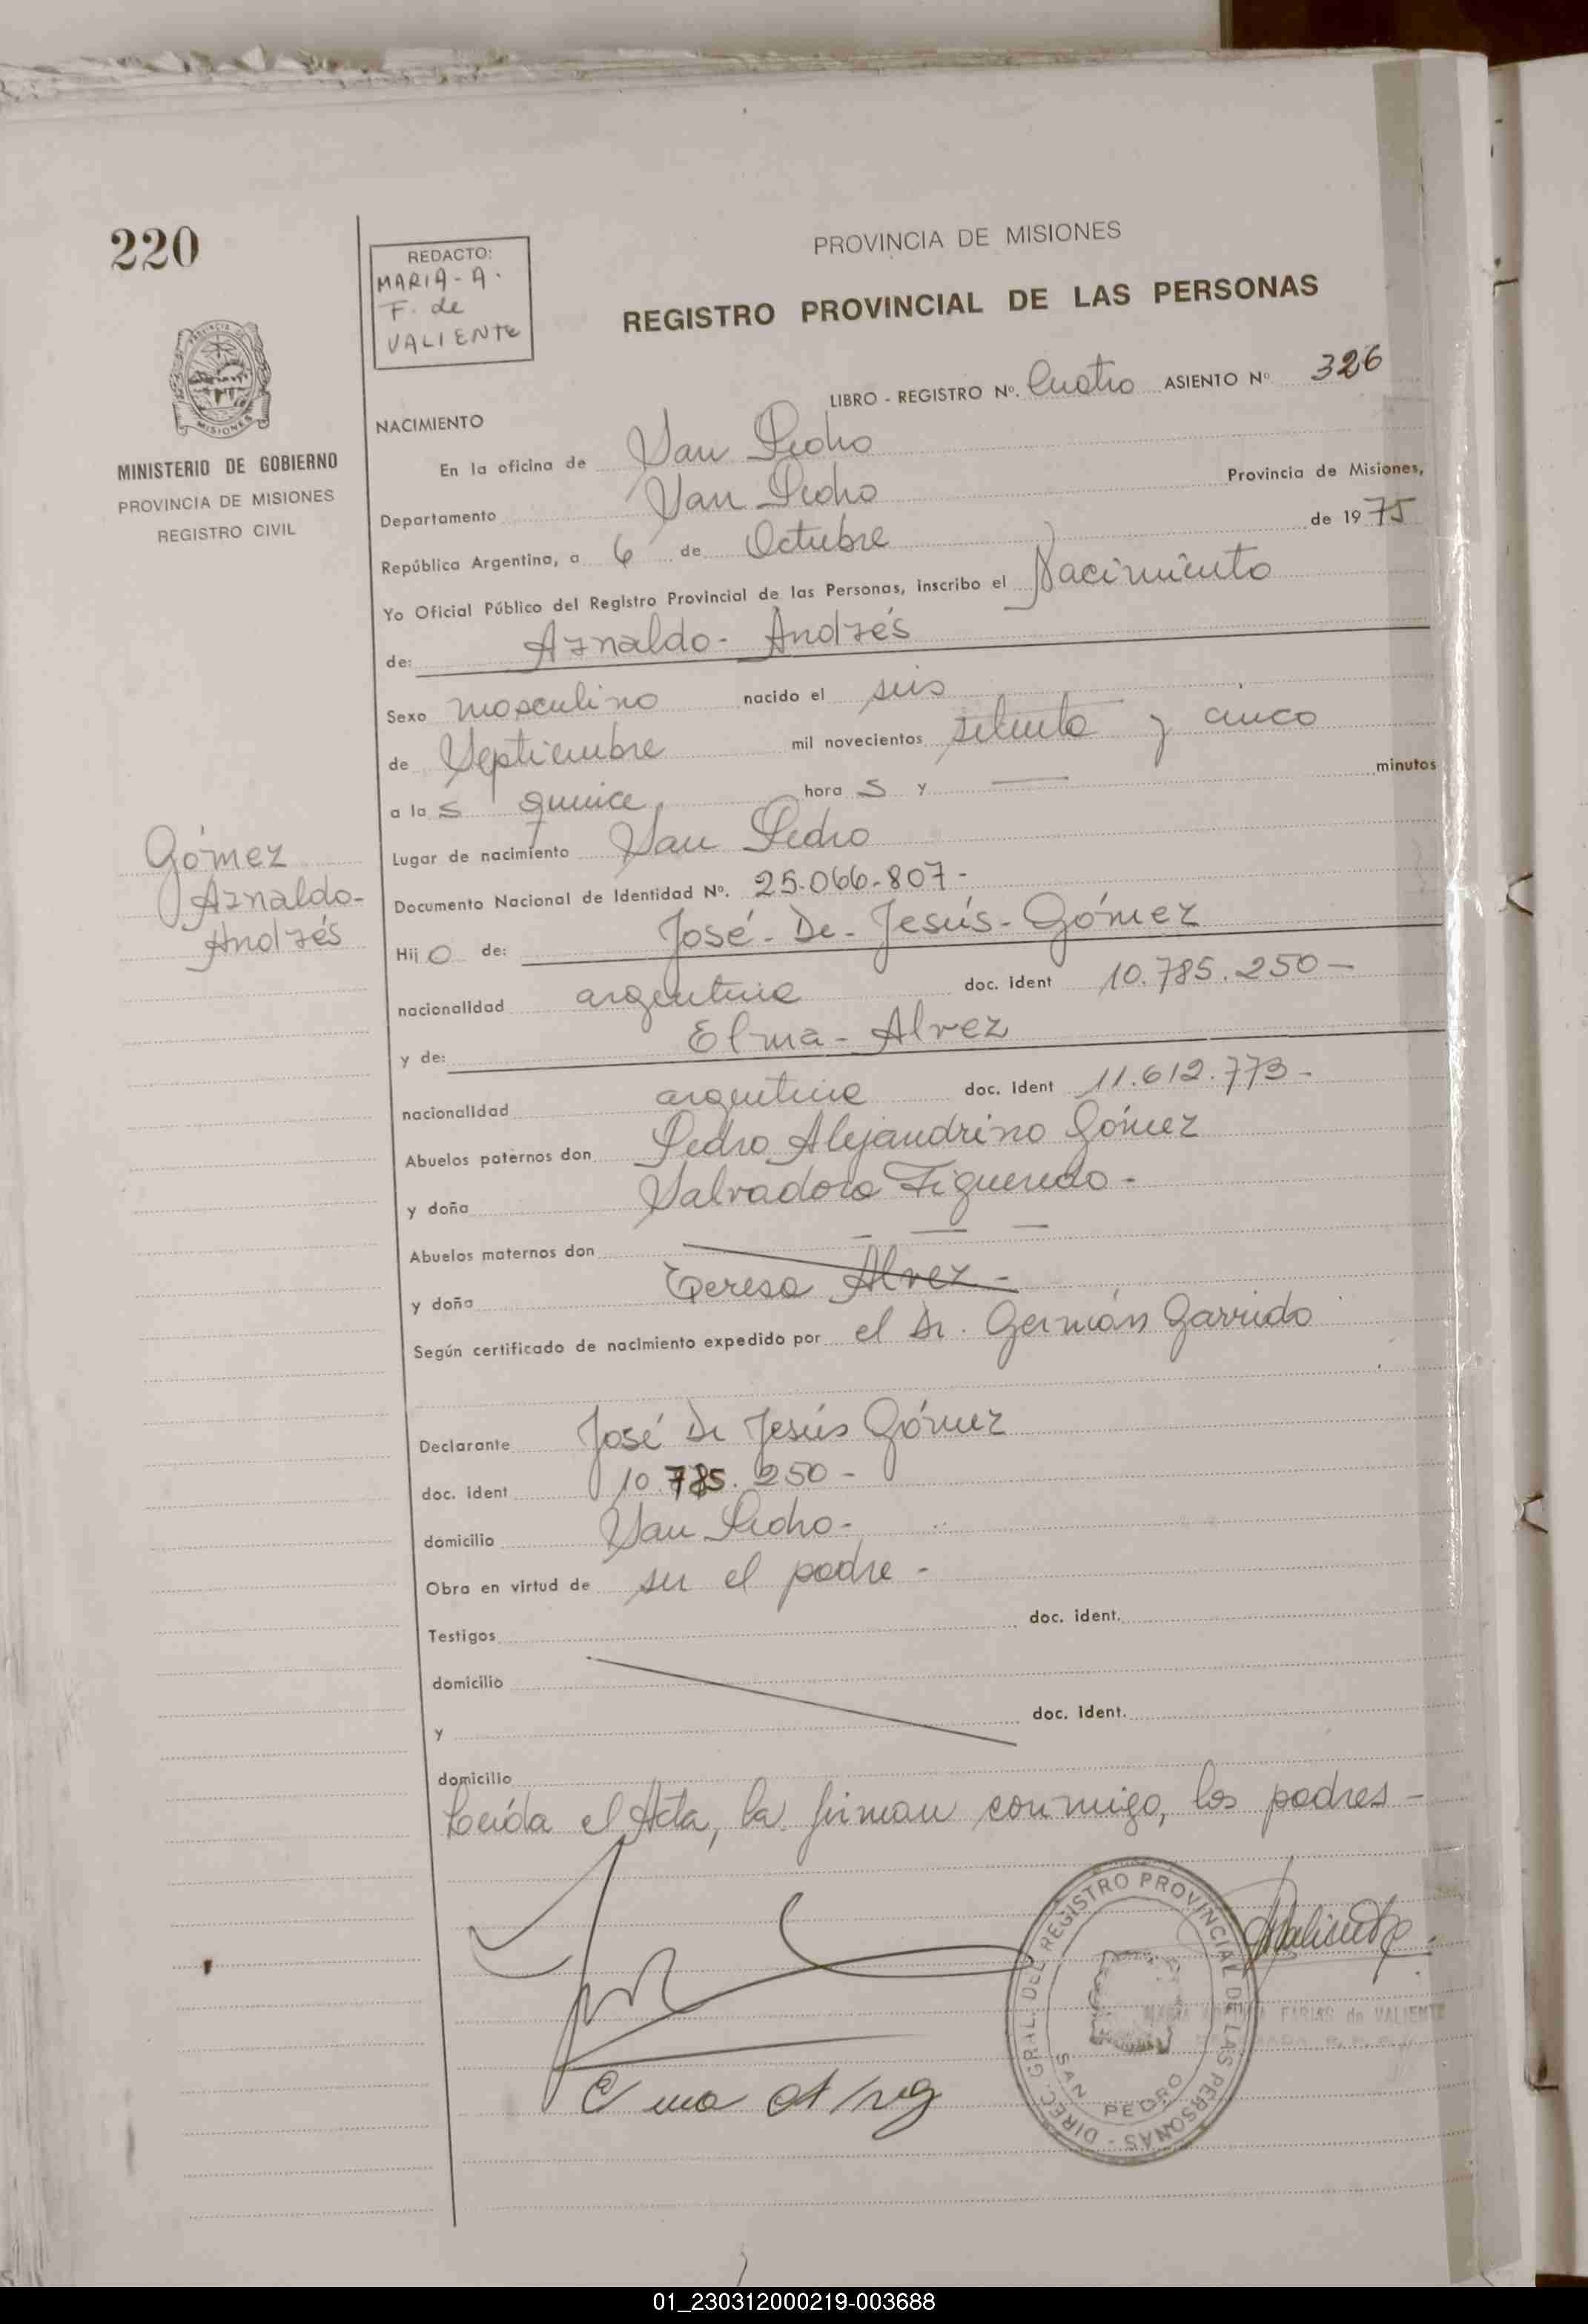 220
REDACTO:
MARIA-A.
F. de
VALIENTE
PROVINCIA DE MISIONES
REGISTRO PROVINCIAL DE LAS PERSONAS
MINISTERIO DE GOBIERNO
PROVINCIA DE MISIONES
REGISTRO CIVIL
LIBRO - REGISTRO Nº. Cuatro ASIENTO Nº 326
NACIMIENTO
En la oficina de San Pedro
Departamento San Pedro Provincia de Misiones,
República Argentina, a 6 de Octubre de 1975
Yo Oficial Público del Registro Provincial de las Personas, inscribo el Nacimiento
de: Arnaldo- Andrés
Sexo masculino nacido el seis
de Septiembre mil novecientos setenta y cinco
a la s quince hora s y — minutos
Lugar de nacimiento San Pedro
Gómez
Arnaldo-
Andrés
Documento Nacional de Identidad Nº. 25.066.807-
Hij o de: José-De-Jesús-Gómez
nacionalidad argentina doc. ident 10.785.250—
y de: Elma-Alvez
nacionalidad argentina doc. ident 11.612.773-
Abuelos paternos don Pedro Alejandrino Gómez
y doña Salvadora Figueredo-
Abuelos maternos don — — —
y doña Teresa Alvez-
Según certificado de nacimiento expedido por el Dr. Germán Garrido
Declarante José De Jesús Gómez
doc. ident 10.785.250-
domicilio San Pedro-
Obra en virtud de ser el padre-
Testigos doc. ident.
domicilio
y doc. ident.
domicilio
Leída el Acta, la firman conmigo, los padres-
Valiente
DIREC. GRAL. DEL REGISTRO PROVINCIAL DE LAS PERSONAS -
SAN PEDRO
FARIAS de VALIENTE
01_230312000219-003688